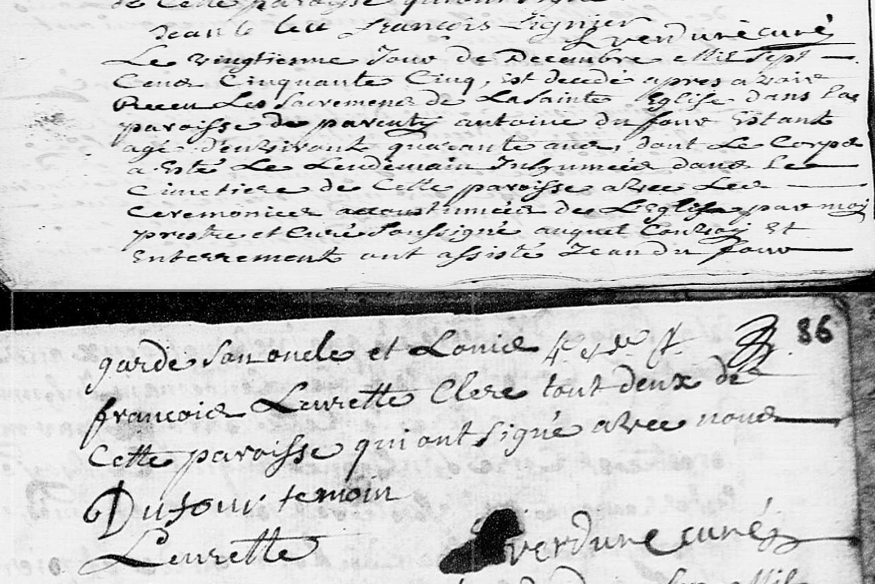 Jean le leu François Fignier
Verdure curé
Le vingtienne Jour de Decembre Mil Sept
Cens Cinquante Cinq, est decedé apres avoir
Receu Les Sacremens de La Sainte Eglise dans la
paroisse de parenty antoine du four Estant
agé d'environt quarante ans, dont Le Corps
a esté Le Lendemain Inhumée dans le
Cimetiere de Cette paroisse avec Les
Ceremonies accoustumées de L'Eglise par moy
prestre et Curé Soussigné auquel Convoy Et
Enterrement ont assisté Jean du four
86
garde son oncle et Louis
françois Leurette Clerc tout deux de
Cette paroisse qui ont signé avec nous
Dufour temoin
Leurette
Verdure curé